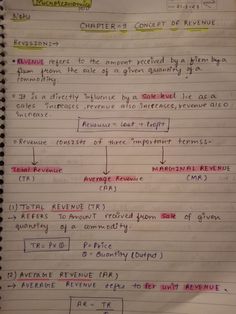 CHAPTER-9 CONCEPT OF REVENUE
REVISION:→
• REVENUE refers to the amount received by a firm by a
firm from the sale of a given quantity of a
commodity.
• It is a directly influence by a Sale level i.e as a
sales increases, revenue also increases, revenue also
increase.
Revenue = Cost + Profit
• Revenue consists of three important terms:-
Total Revenue
(TR)
Average Revenue
(AR)
MARGINAL REVENUE
(MR)
(1) TOTAL REVENUE (TR)
→ REFERS TO Amount received from Sale of given
quantity of a commodity.
TR = P×Q
P = Price
Q = Quantity (Output)
(2) AVERAGE REVENUE (AR)
→ AVERAGE REVENUE refers to Per unit REVENUE.
AR = TR